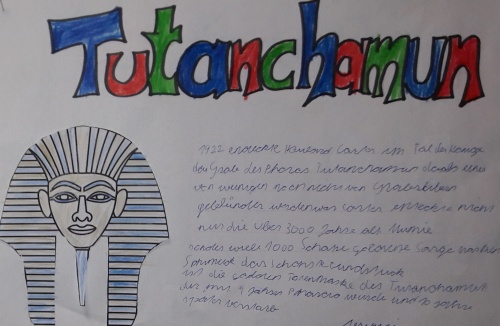 Tutanchamun
1922 entdeckte Howard Carter im Tal der Könige
das Grab des Pharos Tutanchamun
von wenigen noch nicht von Grabräubern
geplündert werden war Carter entdeckte nicht
nur die über 3000 Jahre alte Mumie
sonder viele 1000 Schätze goldene Särge
Schmuck das schönste
ist die goldene Totenmaske des Tutanchamun
der mit 9 Jahren Pharao wurde und 10 Jahre
später verstarb